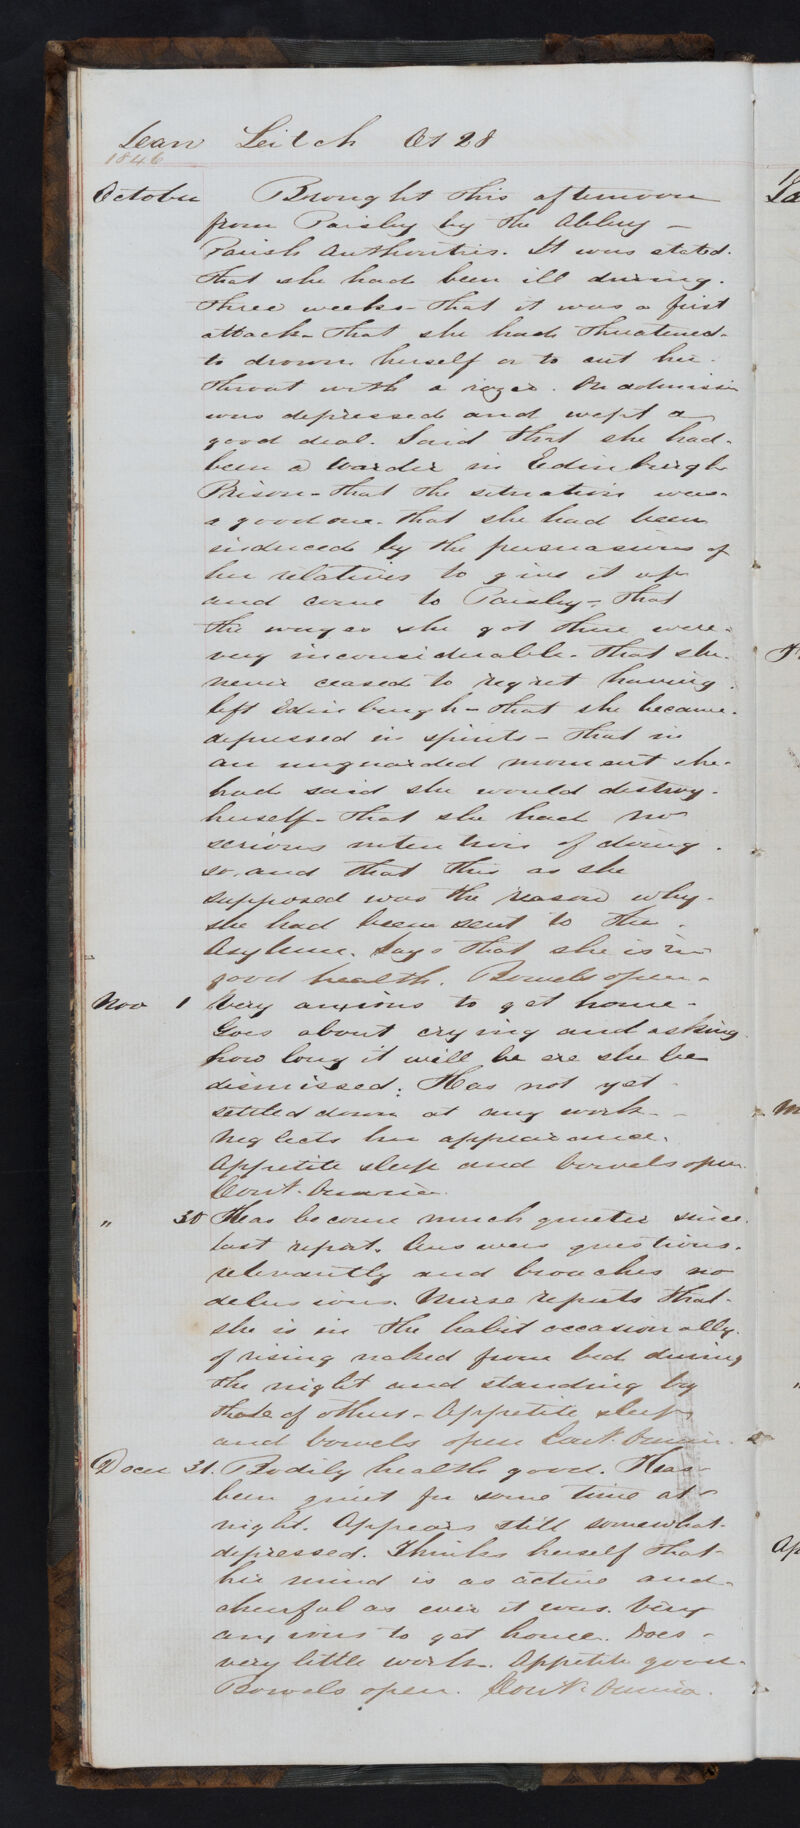 Jean Leitch Æt 28
1846
October Brought this afternoon
from Paisley by the Abbey -
Parish Authorities. It was stated.
that she had been ill during.
three weeks - that it was a first
attack - that she had threatened.
to drown herself or to cut her.
throat with a razor. On admission
was depressed and wept a
good deal. Said that she had.
been a Warder in Edinburgh
Prison - that the situation was.
a good one. that she had been
induced by the persuasions of
her relatives to give it up
and come to Paisley - that
the wages she got there were.
very inconsiderable - that she.
never ceased to regret having.
left Edinburgh - that she became.
depressed in spirits - that in
an unguarded moment she.
had said she would destroy.
herself - that she had no
serious intention of doing.
so. and that this as she
supposed was the reason why.
she had been sent to the.
Asylum. Says that she is in
good health. Bowels open.
Nov 1 Very anxious to get home.
Goes about crying and asking
how long it will be ere she be
dismissed: Has not yet
settled down at any work. -
Neglects her appearance.
Appetite sleep and bowels open.
Cont. Omnia.
" 30 Has become much quieter since.
last report. Answers questions.
relevantly and broaches no
delusions. Nurse reports that.
she is in the habit occasionally.
of rising naked from bed during
the night and standing by
that of others - Appetite sleep
and bowels open Cont. Omnia.
Decr 31. Bodily health good. Has
been quiet for some time at
night. Appears still somewhat.
depressed. Thinks herself that
her mind is as active and.
cheerful as ever it was. Very
anxious to get home. Does -
very little work. Appetite good.
Bowels open. Cont. Omnia.